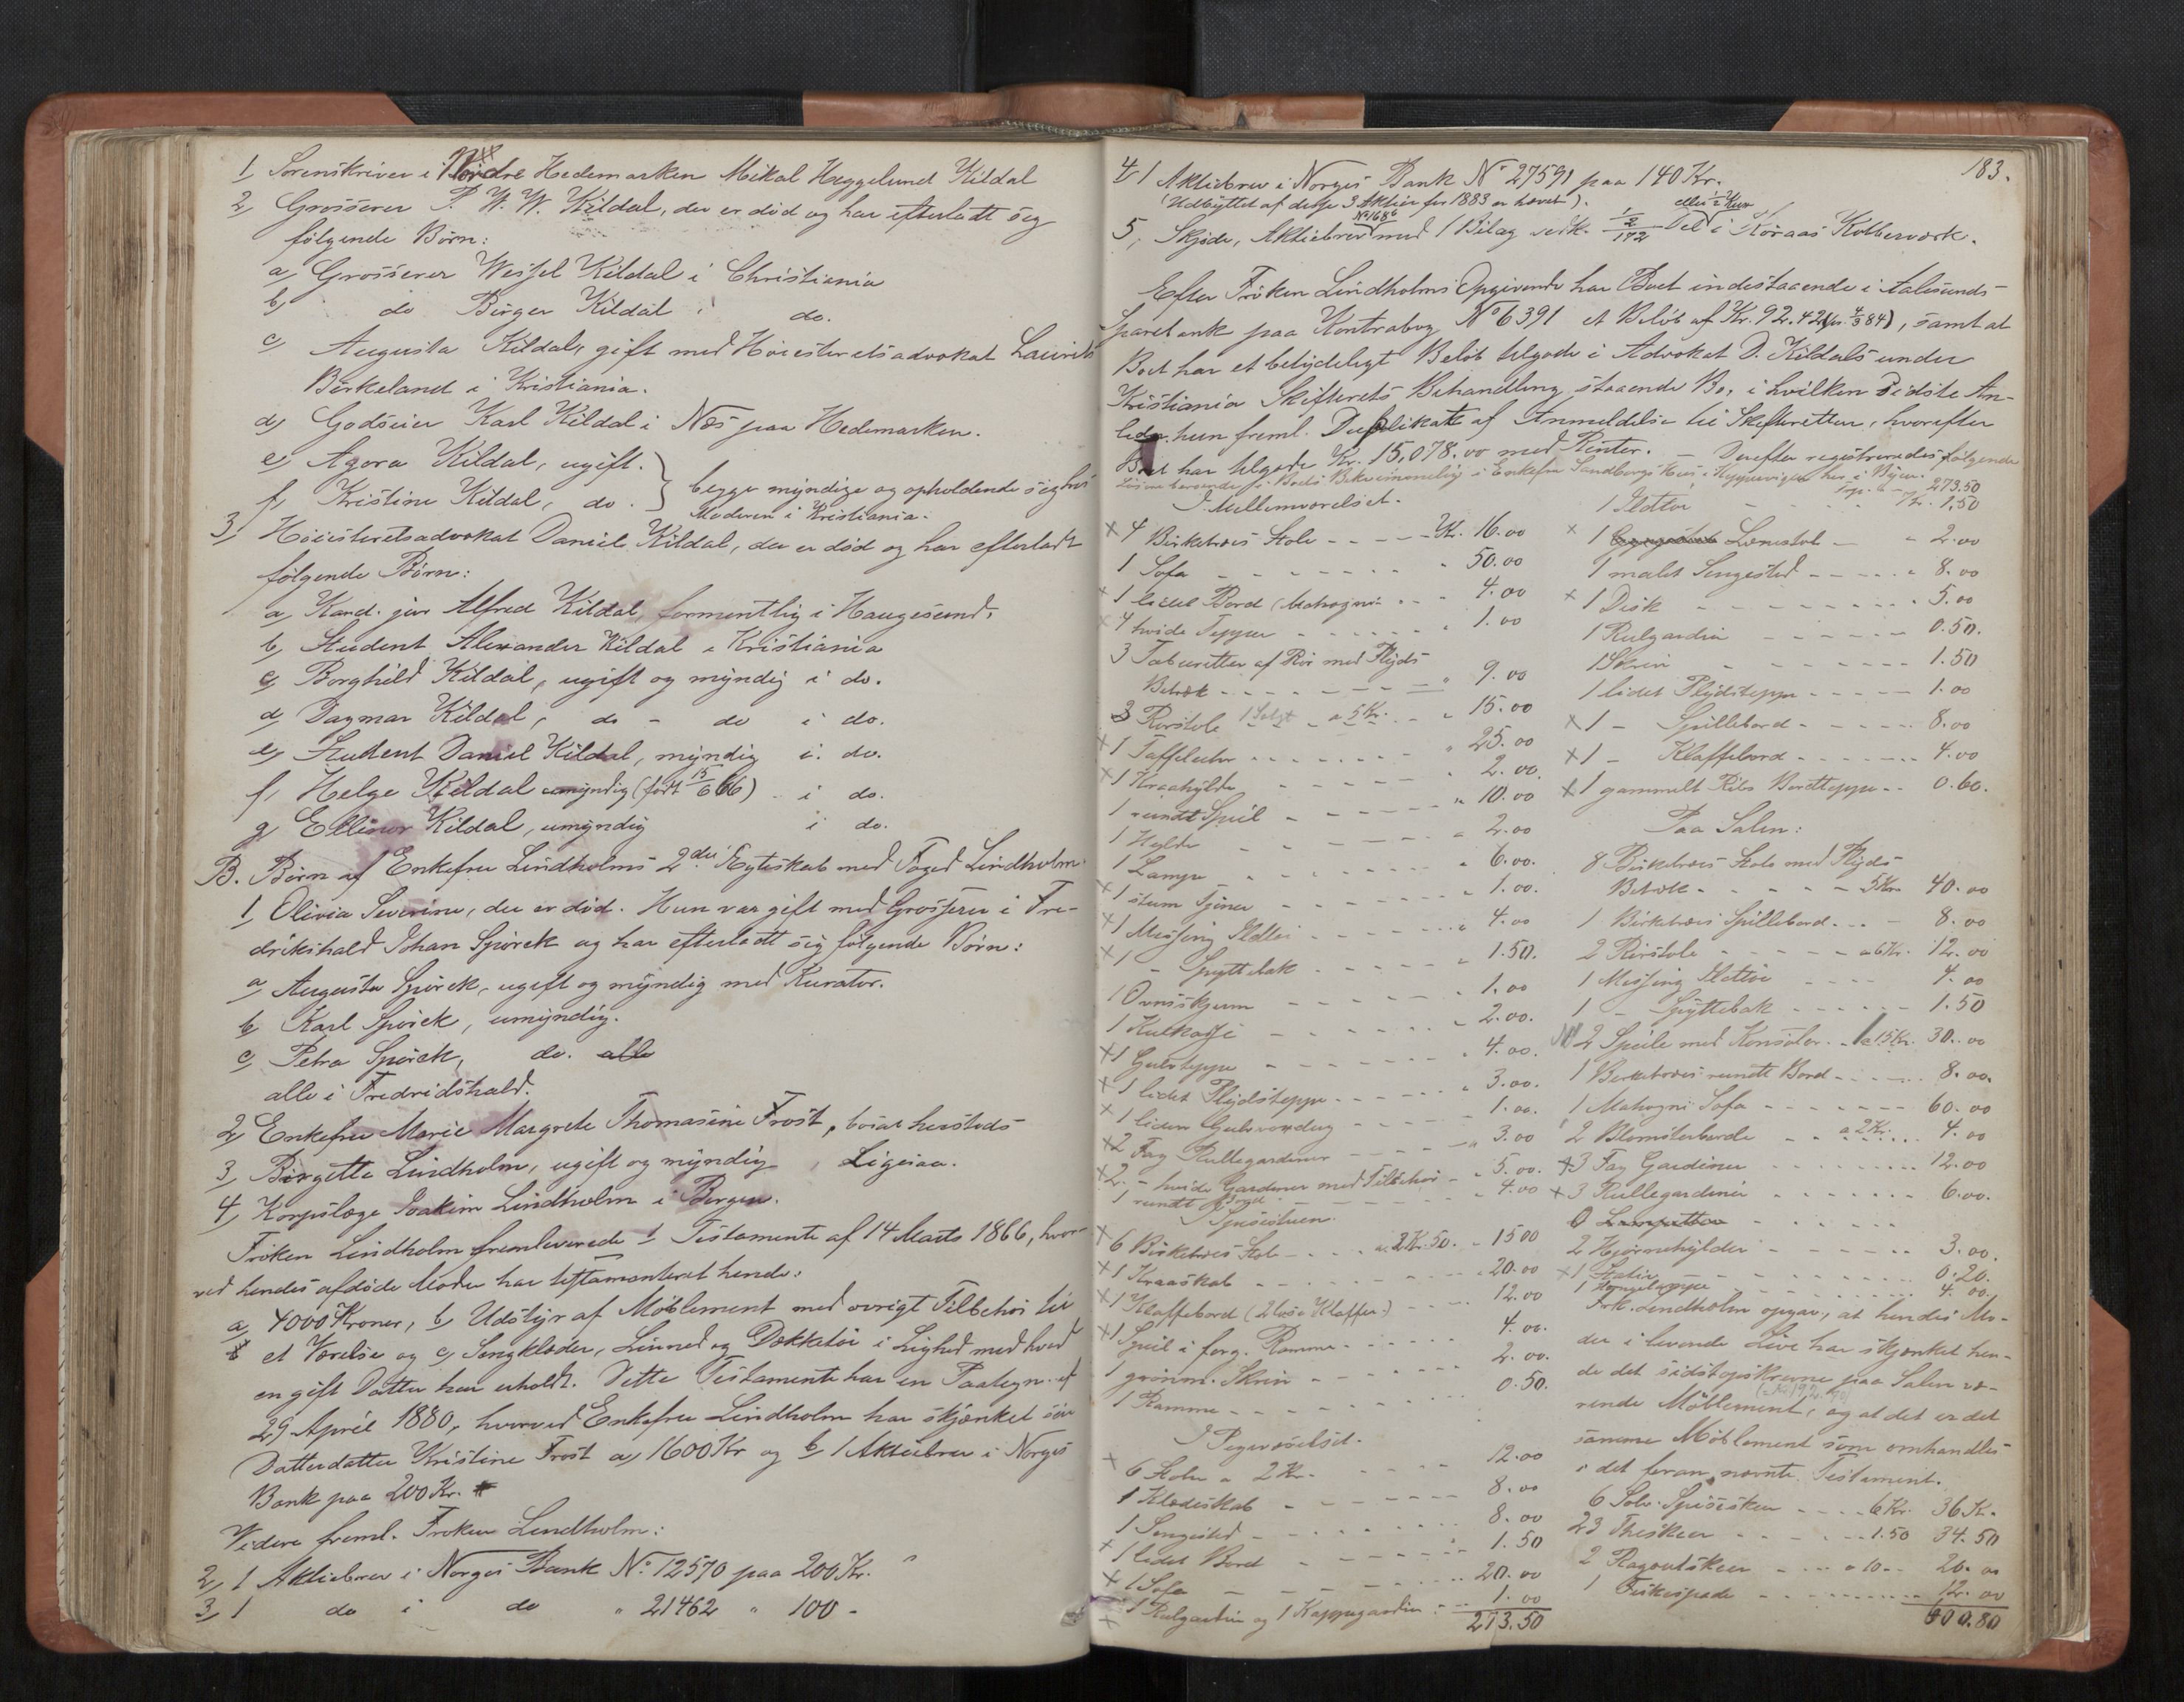 1, Sorenskriver i Nordre Hedemarken Mikal Heggelund Kildal
2, Grosserer P. W. W. Kildal, der er død og har efterladt sig
følgende Børn:
a, Grosserer Wessel Kildal i Christiania
b, do Birger Kildal i do.
c, Augusta Kildal, gift med Høiesteretsadvokat Laurits
Birkeland i Kristiania.
d, Godseier Karl Kildal i Næs paa Hedemarken.
e, Agora Kildal, ugift.
f, Kristine Kildal, do. } begge myndige og opholdende sig hos
Moderen i Kristiania.
3, Høiesteretsadvokat Daniel Kildal, der er død og har efterladt
følgende Børn:
a, Kand. jur Alfred Kildal, formentlig i Haugesund.
b, Student Alexander Kildal i Kristiania
c, Borghild Kildal, ugift og myndig i do.
d, Dagmar Kildal, do - do i do.
e, Student Daniel Kildal, myndig i do.
f, Helge Kildal umyndig (født 15/6 66) i do.
g, Ellinor Kildal, umyndig i do.
B. Børn af Enkefru Lindholms 2det Ægteskab med Foged Lindholm.
1, Olivia Severine, der er død. Hun var gift med Grosserer i Fre-
drikshald Johan Spørck og har efterladt sig følgende Børn:
a, Augusta Spørck, ugift og myndig med Kurator.
b, Karl Spørck, umyndig.
c, Petra Spørck, do. alle
alle i Fredrikshald.
2, Enkefru Marie Margrete Thomasine Frost, boiar hersteds
3, Birgitte Lindholm, ugift og myndig, Ligesaa.
4, Korpslæge Joakim Lindholm i Bergen.
Frøken Lindholm fremleverede 1, Testamente af 14 Marts 1866, hvor-
ved hendes afdøde Moder har testamenteret hende:
a, 4000 Kroner, b, Udstyr af Møblement med øvrigt Tilbehør til
et Værelse og c, Sengklæder, Linned og Dækketøi i Lighed med hvad
en gift Datter har erholdt. Dette Testamente har en Paategn. af
29 April 1880, hvorved Enkefru Lindholm har skjænket sin
Datterdatter Kristine Frost a, 1600 Kr og b, 1 Aktiebrev i Norges
Bank paa 200 Kr.
Videre freml. Frøken Lindholm:
2, 1 Aktiebrev i Norges Bank No 12570 paa 200 Kr.
3, 1 do i do " 21462 " 100 -
183.
4, 1 Aktiebrev i Norges Bank No 27591 paa 140 Kr.
(Udbyttet af disse 3 Aktier for 1883 er hævet).
5, Skjøde, Aktiebrev No 1686 med 1 Bilag vedk. 1/2/172 Del i Røraas Kobberværk.
Efter Frøken Lindholms Opgivende har Boet indestaaende i Aalesunds
Sparebank paa Kontrabog No 6391 et Beløb af Kr. 92.42 (pr. 4/3 84), samt at
Boet har et betydeligt Beløb tilgode i Advokat D. Kildals under
Kristiania Skifterets Behandling staaende Bo, i hvilken sidste An-
ledn. hun freml. Duplikat af Anmeldelse til Skifteretten, hvorefter
Boet har tilgode Kr. 15,078.00 med Renter. - Derefter registreredes følgende
Løsøre beroende i Boets Bekvemmelig i Enkefru Sandbergs Hus i Kipperviken her i Byen.
I Mellemværelset.
× 4 Birketræs Stole - - - - Kr. 16.00
1 Sofa - - - " 50.00
× 1 lidet Bord (Mahogni - - " 4.00
× 4 hvide Tepper - - - " 1.00
3 Taburetter af Rør med Plyds
Betræk - - - " 9.00
3 Rørstole 1 Solgt a 5 Kr. - " 15.00
× 1 Taffeluhr - - - " 25.00
× 1 Kraahylde - - - 2.00.
1 rundt Speil - - - " 10.00
1 Hylde - - - " 2.00
1 Lampe - - - " 6.00.
× 1 stum Tjener - - - " 1.00.
× 1 Messing Ildtøi - - - " 4.00
× 1 - Spyttebak - - - " 1.50.
1 Ovnsskjerm - - - " 1.00
1 Kulkasse - - - " 2.00.
× 1 Gulvteppe - - - " 4.00.
× 1 lidet Plydsteppe - - - " 3.00.
× 1 liden - - - 1.00.
× 2 Fag Rullegardiner - - - " 3.00
× 2 - hvide Gardiner med Tilbehør - " 5.00.
1 rundt Bord - - - " 4.00
I Spisestuen.
× 6 Birketræs Stole - - - a 2 Kr. 50. - 15 00
× 1 Kraaskab - - - " 20.00
× 1 Klaffebord (2 løse Klaffer) - - - 12.00
× 1 Speil i forg. Ramme - - - 4.00.
1 grønm. Skrin - - - 2.00.
1 Ramme - - - 0.50.
I Pigeværelset.
× 6 Stole a 2 Kr. - - - 12.00
1 Klædeskab - - - 8.00
1 Sengested - - - 8.00
× 1 lidet Bord - - - 1.50
× 1 Sofa - - - 20.00
× 1 Rulgardin og 1 Kappegardin - - 1.00
273.50
Trp. - - 273.50
1 Ildtøi - - - Kr. 1,50
× 1 Lænestol - " 2.00
1 malet Sengested - - - " 8.00
× 1 Disk - - - " 5.00
1 Rulgardin - - - 0.50.
1 Skrin - - - 1.50
1 lidet Plydsteppe - - - 1.00
× 1 - Spillebord - - - 8.00
× 1 - Klaffebord - - - 4.00
× 1 gammelt Ribs Bordteppe - - 0.60.
Paa Salen:
8 Birketræs Stole med Plyds
Betræk - - - 5 Kr. 40.00
1 Birketræs Spillebord - - - 8.00
2 Rørstole - - - a 6 Kr. 12.00
1 Messing Ildtøi - - - 4.00
1 - Spyttebak - - - 1.50
2 Speile med Konsoler - a 15 Kr. 30.00
1 Birketræs rundt Bord - - - 8.00.
1 Mahogni Sofa - - - 60.00
2 Blomsterborde - - a 2 Kr. - - 4.00
× 3 Fag Gardiner - - - 12.00
× 3 Rullegardiner - - - 6.00.
0 Lampetter - - -
2 Hjørnehylder - - - 3.00.
× 1 Stativ - - - 0.20.
1 - - - 4.00.
Frk. Lindholm opgav, at hendes Mo-
der i levende Live har skjænket hen-
de det sidstopskrevne paa Salen væ-
rende Møblement, og at det er det
samme Møblement som omhandles
i det foran nævnte Testament.
6 Sølv Spiseskeer - - - 6 Kr. 36 Kr.
23 Theskeer - - - 1.50 34.50
2 Ragoutskeer - - - a 10 - - 20.00
1 Fiskespade - - - 12.00
600.80